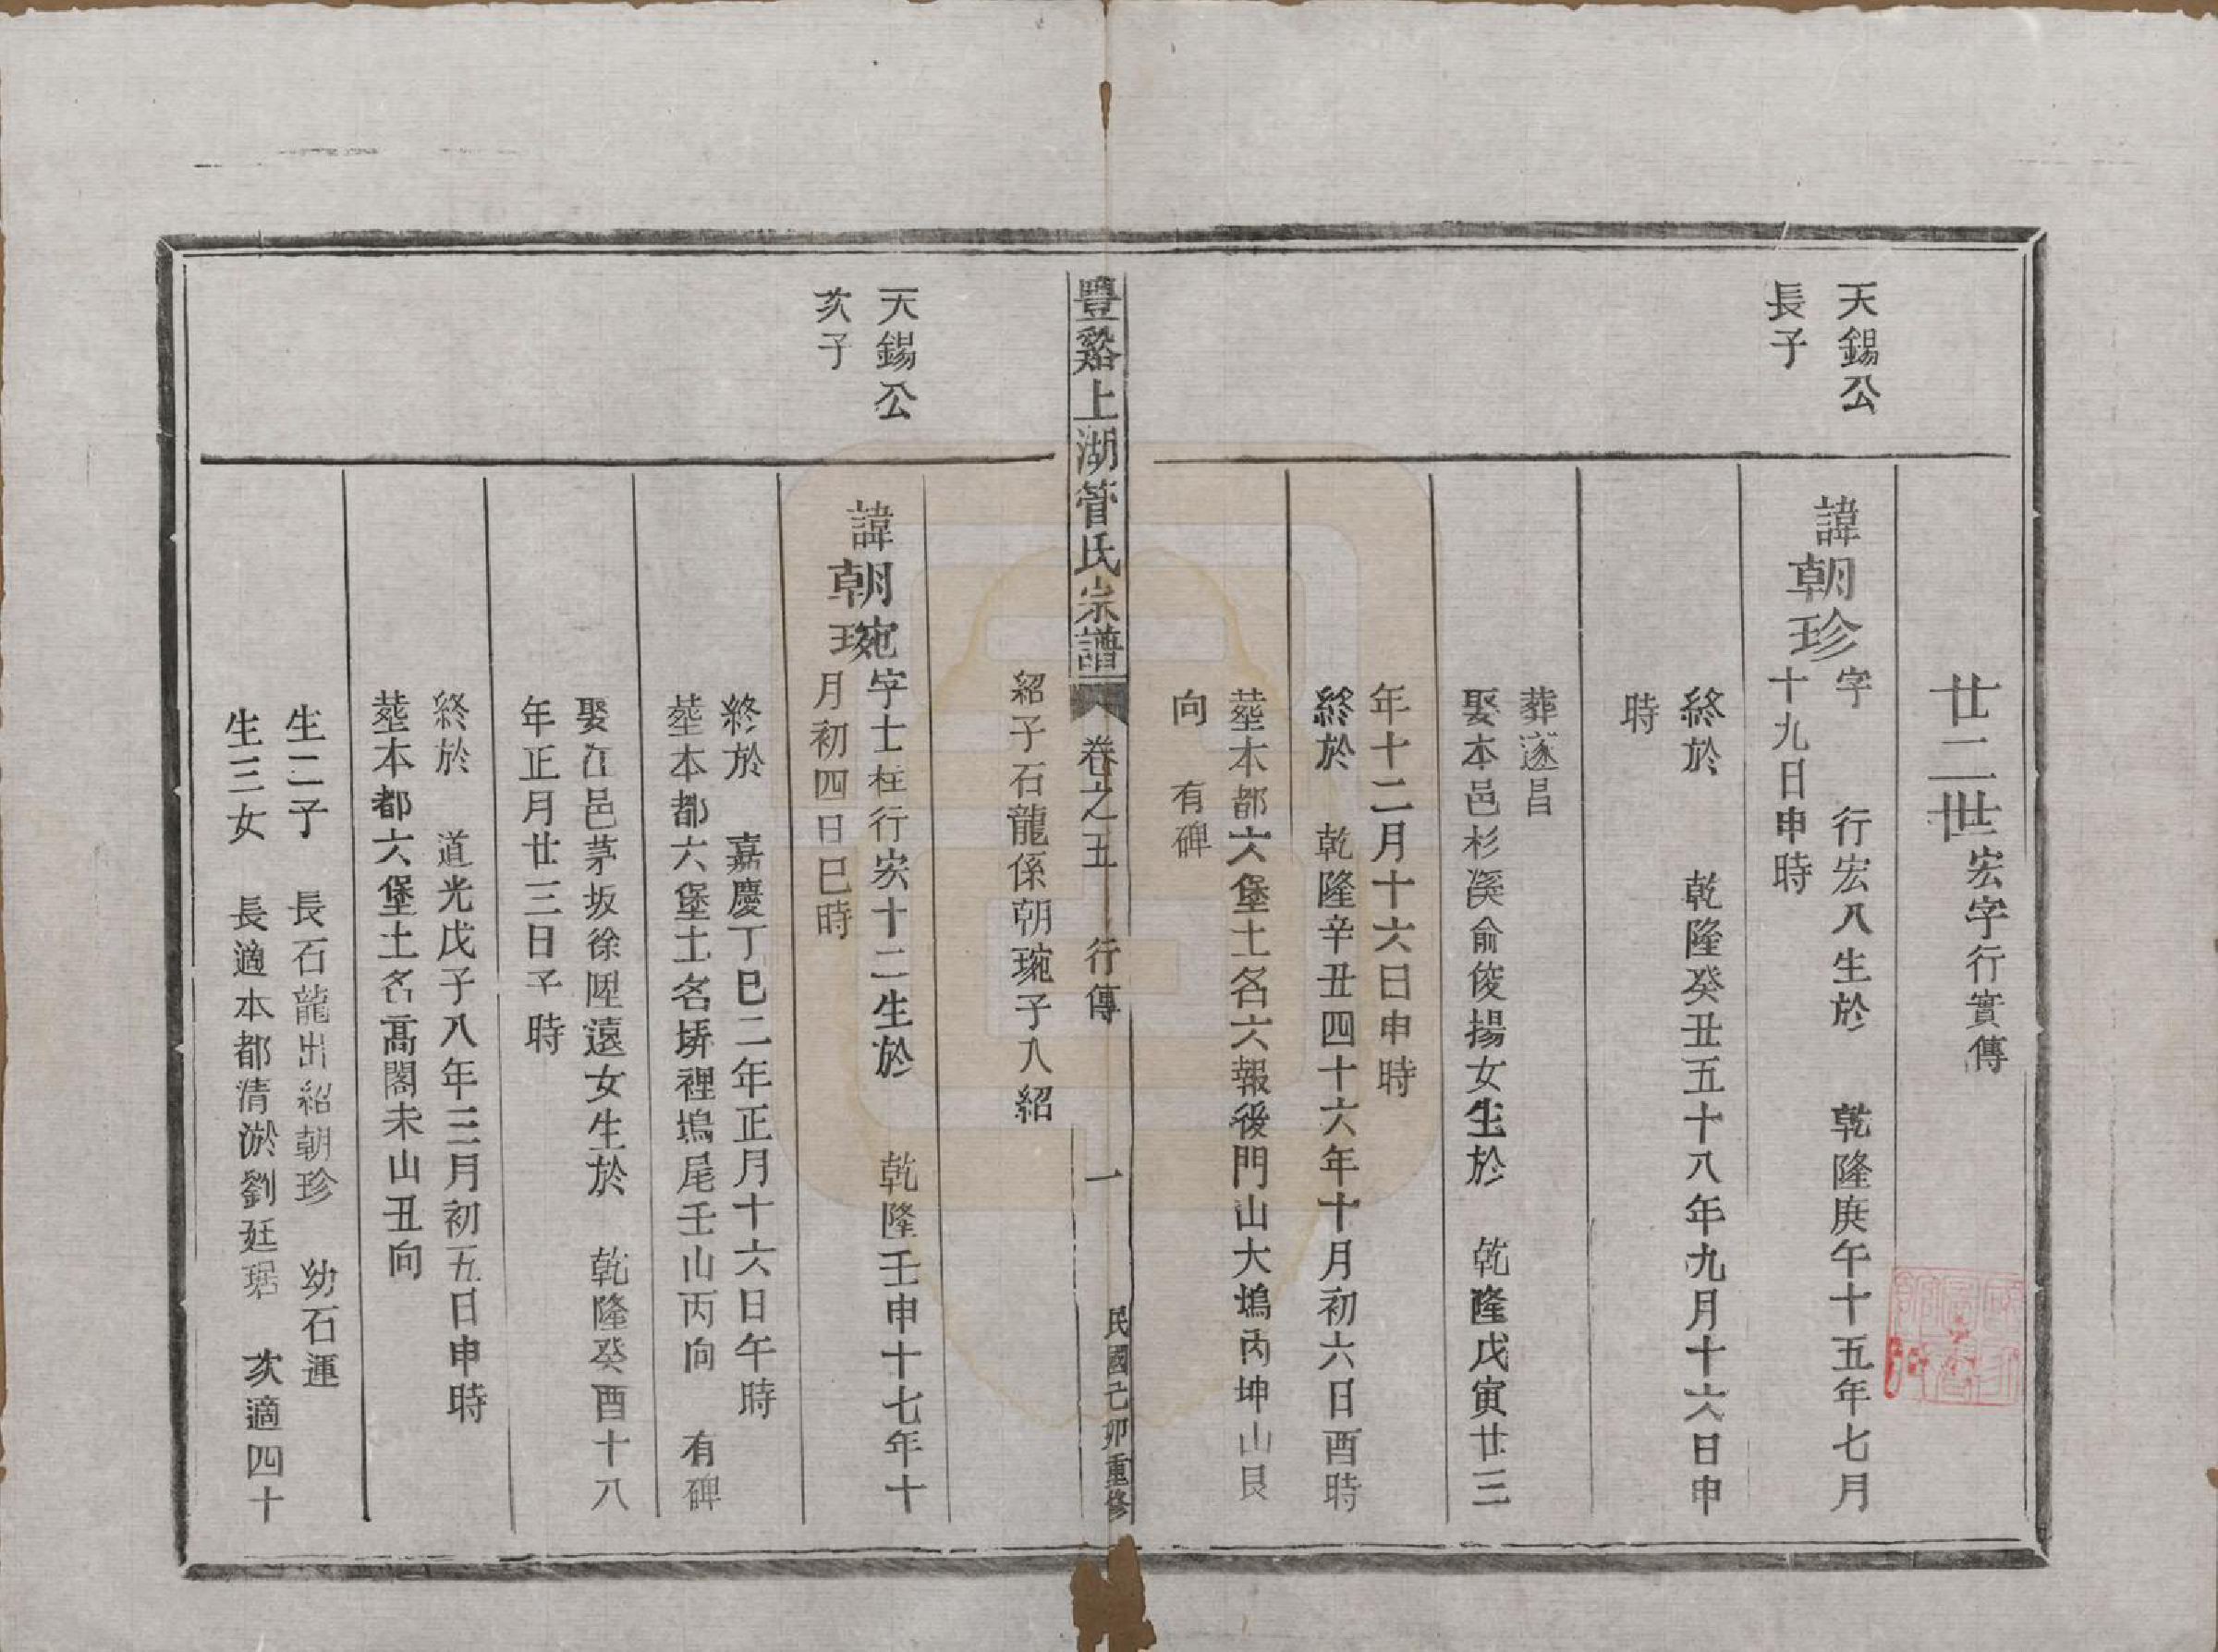 廿二世宏字行實傳
天錫公
長子
諱朝珍字 行宏八生於 乾隆庚午十五年七月
十九日申時
終於 乾隆癸丑五十八年九月十六日申
時
葬遂昌
娶本邑杉溪俞俊揚女生於 乾隆戊寅廿三
年十二月十六日申時
終於 乾隆辛丑四十六年十月初六日酉時
塟本都六堡土名六報後門山大塢丙坤山艮
向 有碑
紹子石龍係朝琬子入紹
豐谿上湖管氏宗譜 卷之五 行傳 一 民國己卯重修
天錫公
次子
諱朝琬字士柱行宏十二生於 乾隆壬申十七年十
月初四日巳時
終於 嘉慶丁巳二年正月十六日午時
塟本都六堡土名塝裡塢尾壬山丙向 有碑
娶江邑茅坂徐陞遠女生於 乾隆癸酉十八
年正月廿三日子時
終於 道光戊子八年三月初五日申時
塟本都六堡土名高閣未山丑向
生二子 長石龍出紹朝珍 幼石運
生三女 長適本都清淤劉廷琚 次適四十